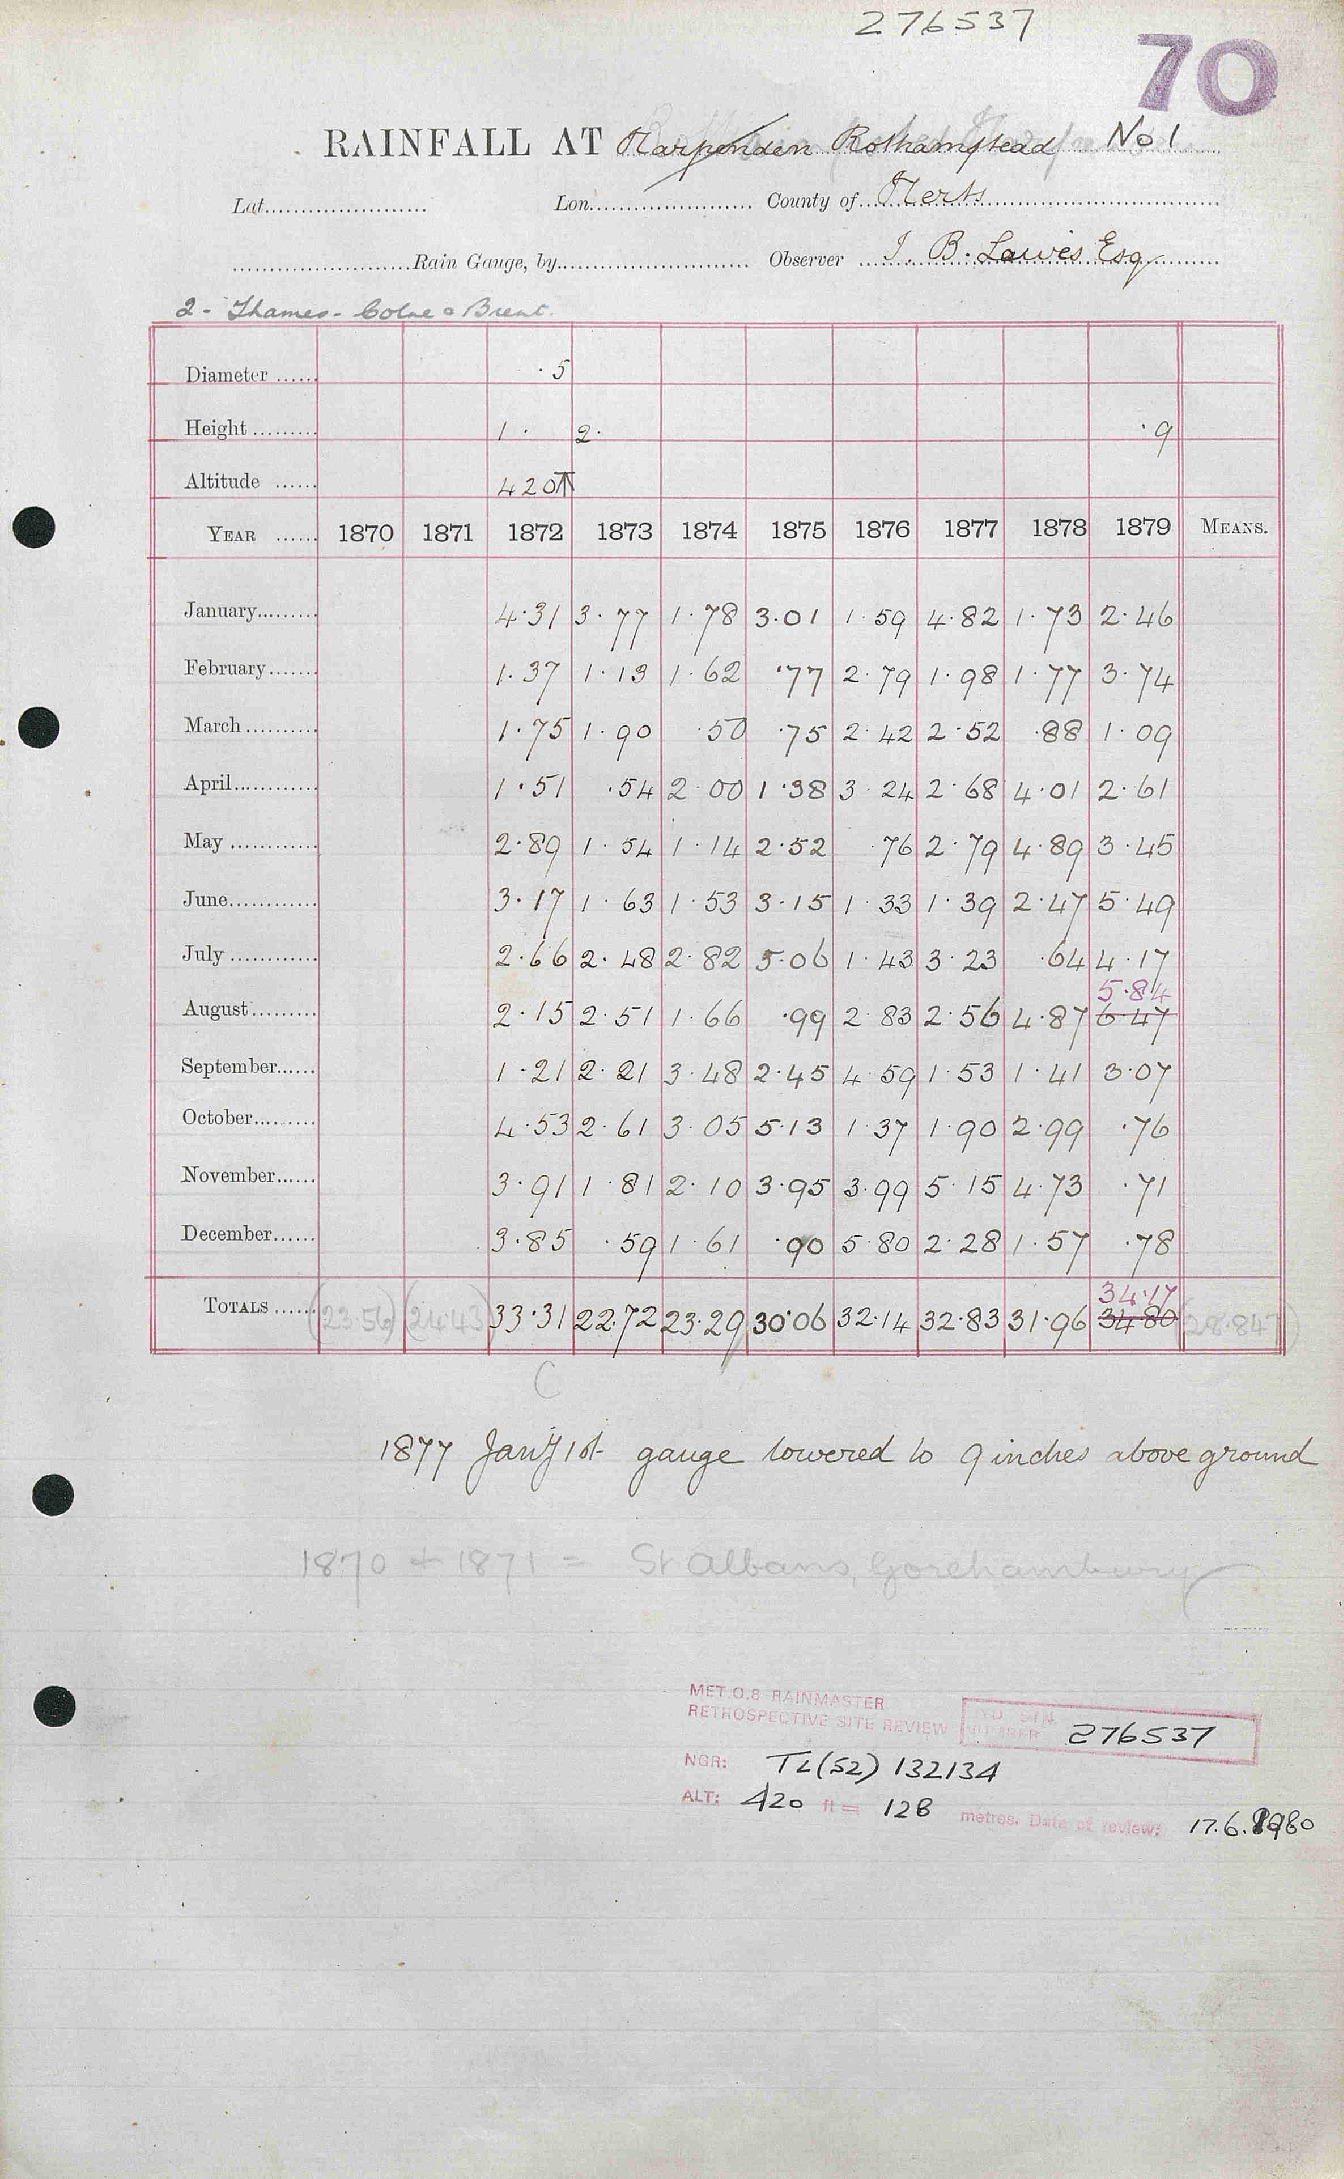 276537
70
RAINFALL AT Harpenden Rothampstead No 1
Lat. Lon. County of Herts
Rain Gauge, by Observer J. B. Lawes Esq
2 - Thames - Colne & Brent.
Diameter ...... .5
Height ......... 1. 2. .9
Altitude ...... 420
YEAR ...... 1870 1871 1872 1873 1874 1875 1876 1877 1878 1879 MEANS.
January......... 4.31 3.77 1.78 3.01 1.59 4.82 1.73 2.46
February....... 1.37 1.13 1.62 .77 2.79 1.98 1.77 3.74
March .......... 1.75 1.90 .50 .75 2.42 2.52 .88 1.09
April............ 1.51 .54 2.00 1.38 3.24 2.68 4.01 2.61
May ............ 2.89 1.54 1.14 2.52 .76 2.79 4.89 3.45
June............ 3.17 1.63 1.53 3.15 1.33 1.39 2.47 5.49
July ............ 2.66 2.48 2.82 5.06 1.43 3.23 .64 4.17
5.84
August......... 2.15 2.51 1.66 .99 2.83 2.56 4.87 6.47
September...... 1.21 2.21 3.48 2.45 4.59 1.53 1.41 3.07
October......... 4.53 2.61 3.05 5.13 1.37 1.90 2.99 .76
November...... 3.91 1.81 2.10 3.95 3.99 5.15 4.73 .71
December...... 3.85 .59 1.61 .90 5.80 2.28 1.57 .78
34.17
TOTALS ...... (23.56) (24.43) 33.31 22.72 23.29 30.06 32.14 32.83 31.96 34.80 (28.847)
C
1877 Jany 1st gauge lowered to 9 inches above ground
1870 + 1871 = St Albans, Gorehambury
MET.O.8 RAINMASTER
RETROSPECTIVE SITE REVIEW
NUMBER 276537
NGR: TL(52) 132134
ALT: 420 ft = 128 metres. Date of review: 17.6.1980